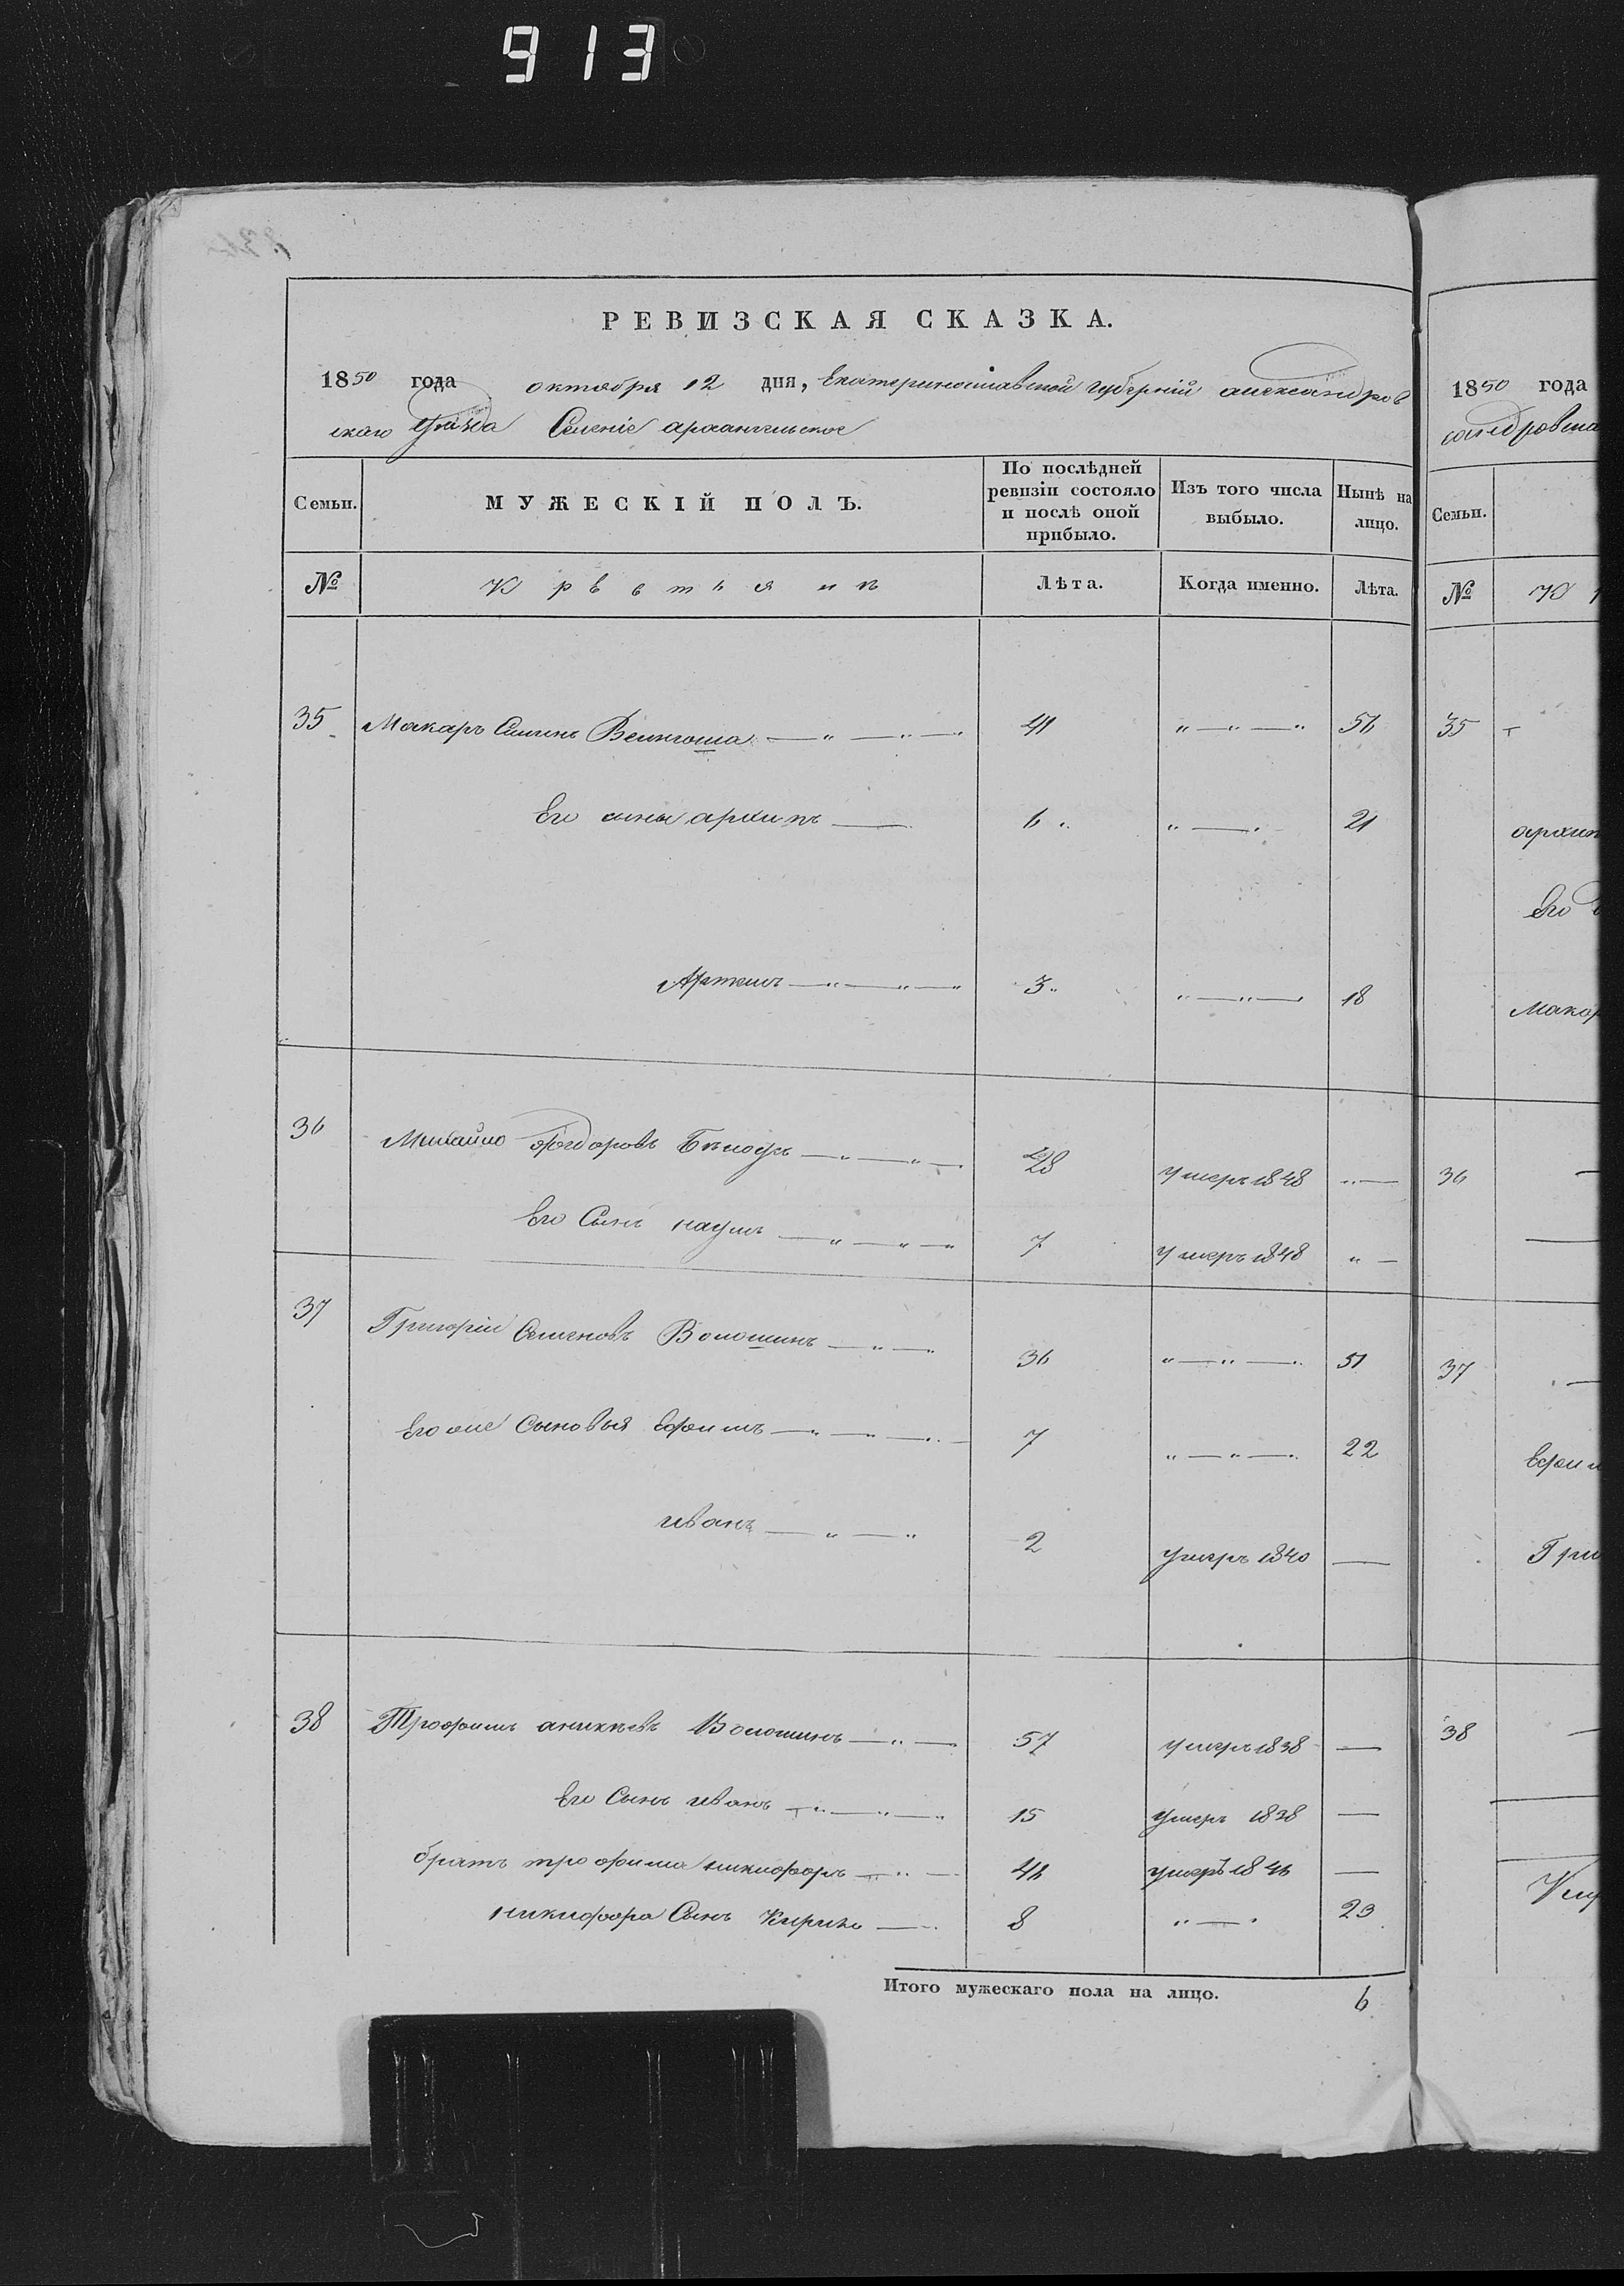 913
РЕВИЗСКАЯ СКАЗКА.
1850 года октября 12 дня, Екатеринославской губерній александров
скаго уѣзда Селеніе архангельское
Семьи.
МУЖЕСКІЙ ПОЛЪ.
По послѣдней ревизіи состояло и послѣ оной прибыло.
Изъ того числа выбыло.
Нынѣ на лицо.
№
Лѣта.
Когда именно.
Лѣта.
35 Макаръ 41 56
Его сины архипъ 6 21
Артемъ 3 18
36 Михайло Фѣодоровъ Бѣлоусъ 28 умеръ 1848
Его Сынъ наумъ 7 умеръ 1848
37 Григоріи Семеновъ Волошинъ 36 51
Его же Сыновья Ефимъ 7 22
иванъ 2 умеръ 1840
38 Трофимъ аникѣевъ Волошинъ 57 умеръ 1838
Его Сынъ иванъ 15 умеръ 1838
братъ трофима никифоръ умеръ
никифора Сынъ Кирило 8 23
Итого мужескаго пола на лицо. 6
1850 года
Семьи.
№
35
архип
Его
Макар
36
37
Ефим
Гри
38